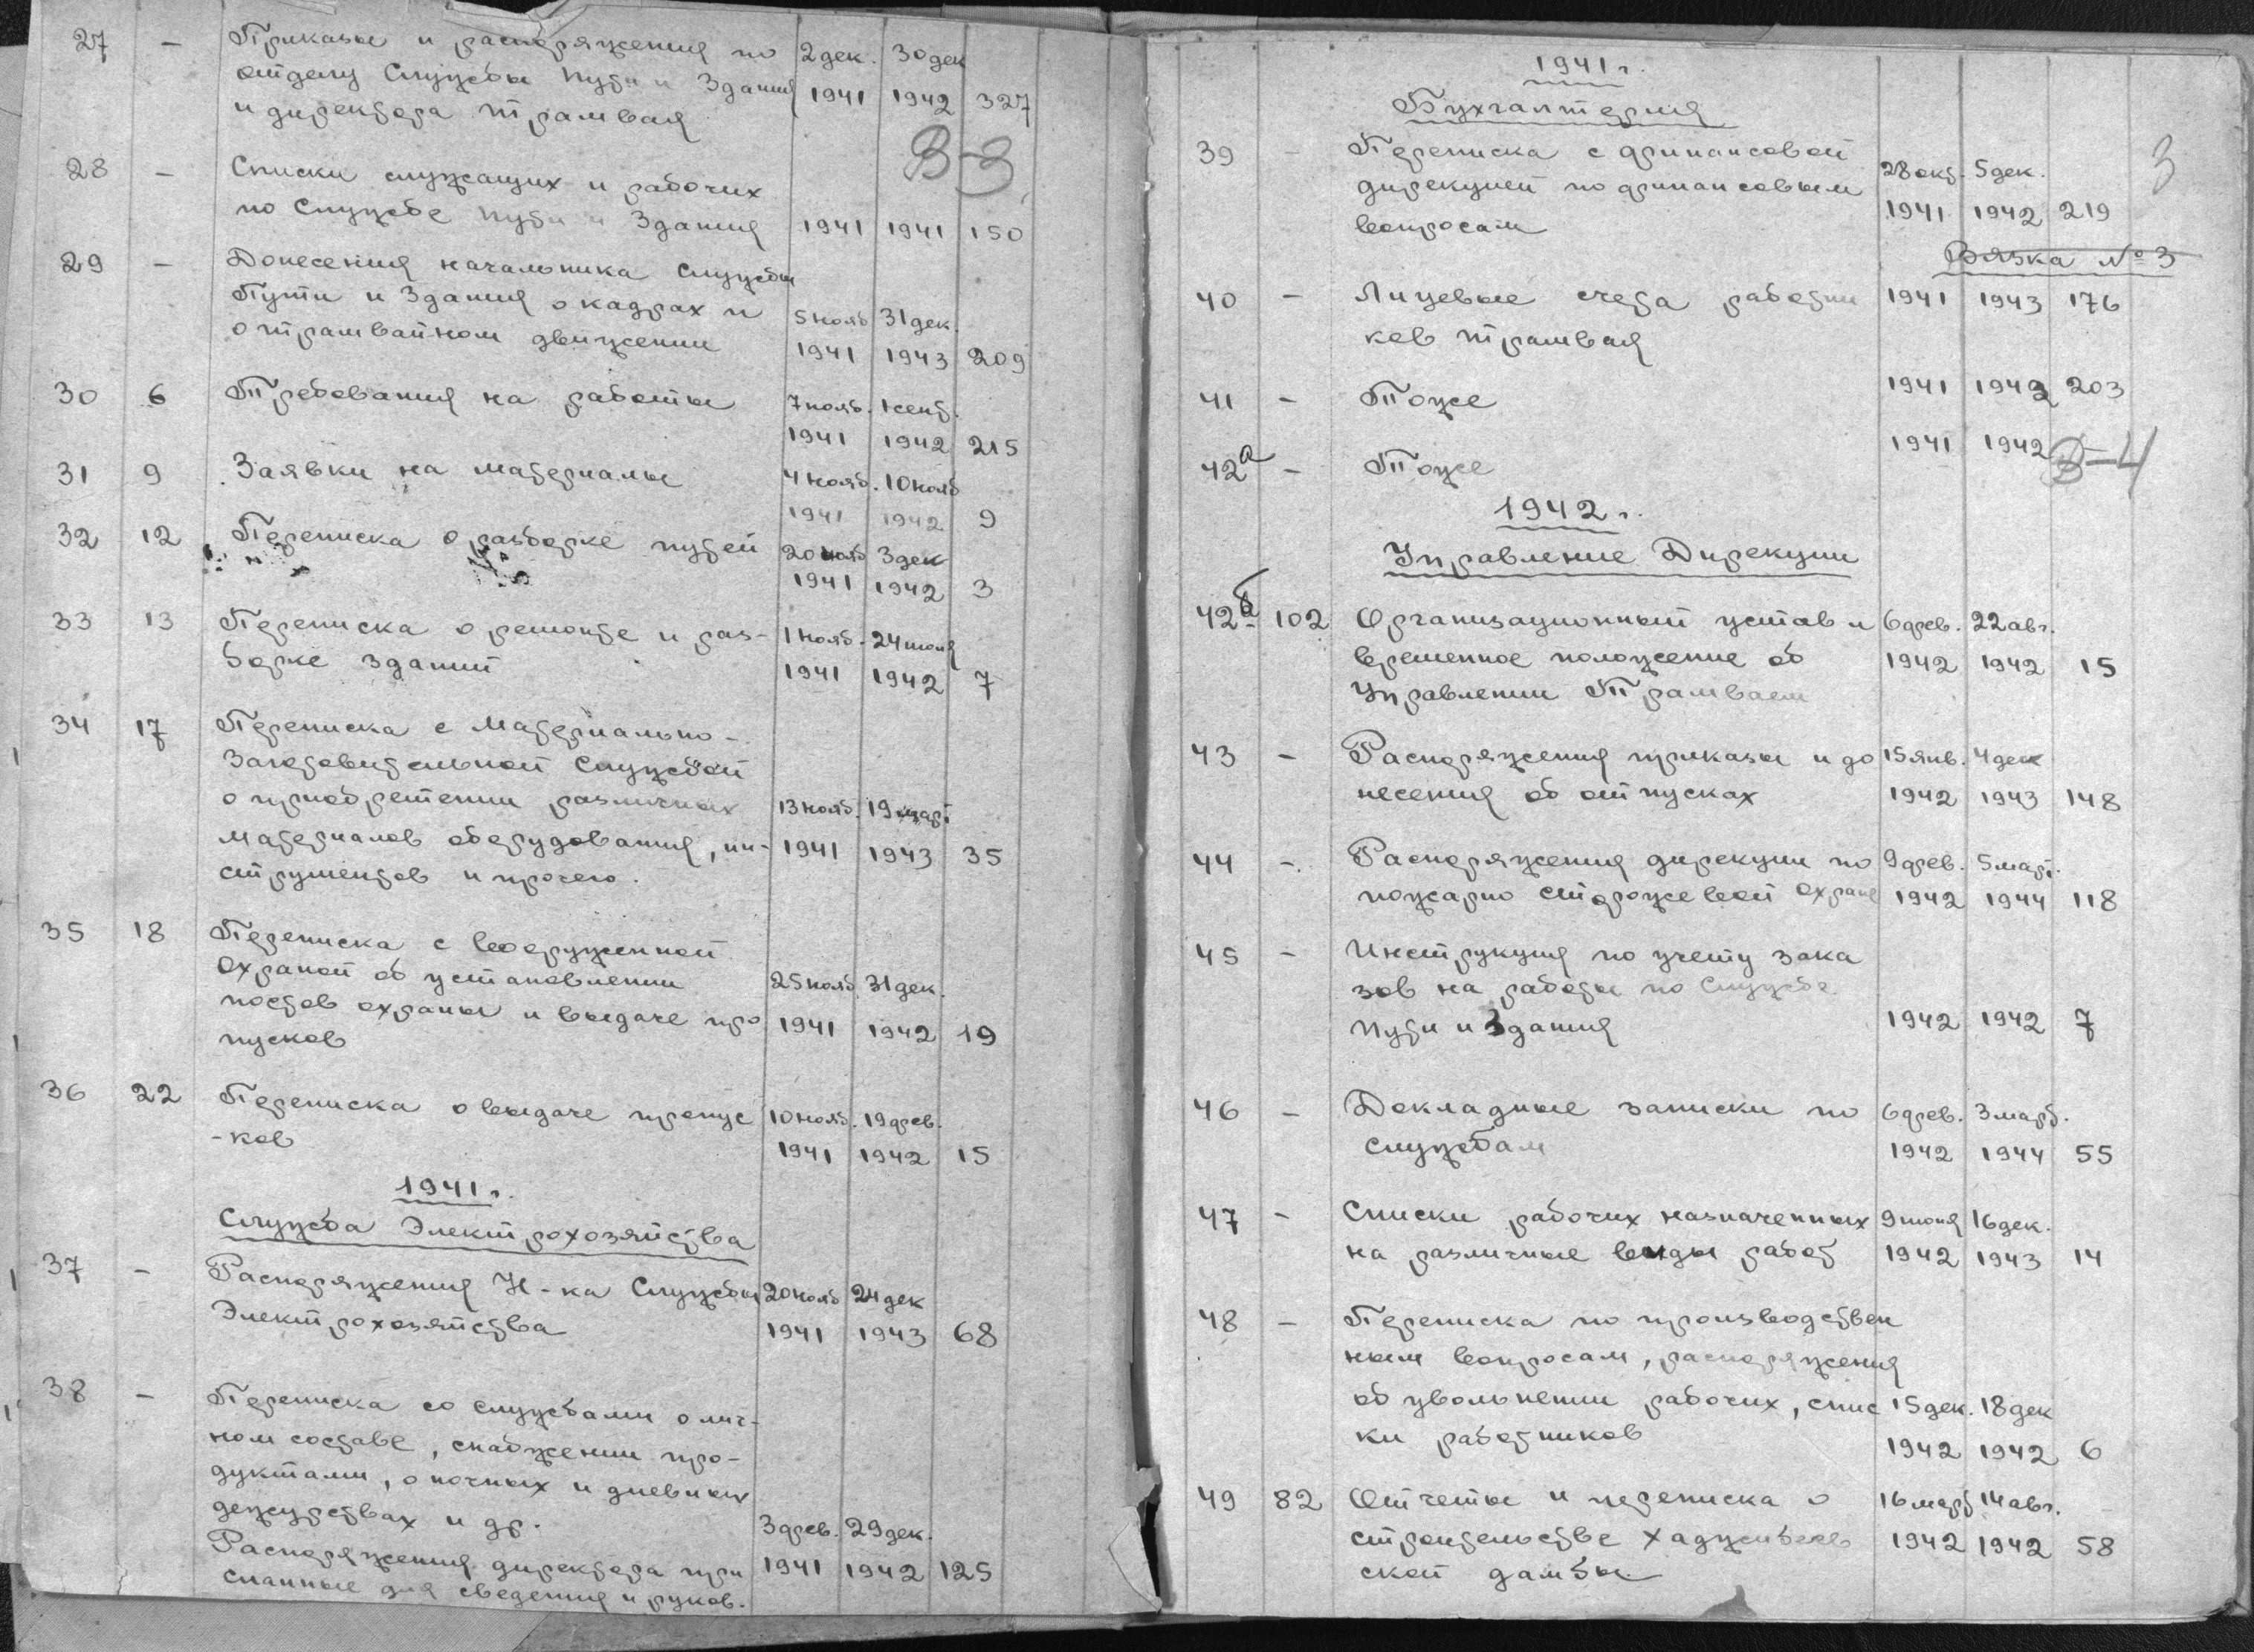 27 — Приказы и распоряжения по 2 дек. 30 дек
отделу Службы Пути и Здания 1941 1942 327
и директора трамвая
В-3
28 — Списки служащих и рабочих
по Службе Пути и Здания 1941 1941 150
29 — Донесения начальника Службы
Пути и Здания о кадрах и 5 нояб 31 дек.
о трамвайном движении 1941 1943 209
30 6 Требования на работы 7 нояб. 1 сент.
1941 1942 215
31 9 Заявки на материалы 4 нояб. 10 нояб
1941 1942 9
32 12 Переписка о разборке путей 20 нояб 3 дек
1941 1942 3
33 13 Переписка о ремонте и раз- 1 нояб. 24 июня
борке зданий 1941 1942 7
34 17 Переписка с Материально-
Заготовительной Службой
о приобретении различных 13 нояб. 19 март
материалов оборудования, ин- 1941 1943 35
струментов и прочего.
35 18 Переписка с вооруженной
Охраной об установлении 25 нояб. 31 дек.
постов охраны и выдаче про 1941 1942 19
пусков
36 22 Переписка о выдаче пропус 10 нояб. 19 фев.
-ков 1941 1942 15
1941 г.
Служба Электрохозяйства
37 — Распоряжения Н-ка Службы 20 нояб 24 дек
Электрохозяйства 1941 1943 68
38 — Переписка со службами о лич-
ном составе, снабжении про-
дуктами, о ночных и дневных
дежурствах и др. 3 фев. 29 дек.
Распоряжения директора при 1941 1942 125
сланные для сведения и руков.
1941 г.
Бухгалтерия
3
39 — Переписка с финансовой 28 окт. 5 дек.
дирекцией по финансовым 1941 1942 219
вопросам
Вязка № 3
40 — Лицевые счета работни 1941 1943 176
ков трамвая
41 — Тоже 1941 1942 203
42а — Тоже 1941 1942
В-4
1942 г.
Управление Дирекции
42б 102 Организационный устав и 6 фев. 22 авг.
временное положение об 1942 1942 15
Управлении Трамваем
43 — Распоряжения приказы и до 15 янв. 4 дек
несения об отпусках 1942 1943 148
44 — Распоряжения дирекции по 9 фев. 5 март.
пожарно сторожевой охране 1942 1944 118
45 — Инструкция по учету зака
зов на работы по Службе
Пути и Здания 1942 1942 7
46 — Докладные записки по 6 фев. 3 март.
службам 1942 1944 55
47 — Списки рабочих назначенных 9 июня 16 дек.
на различные виды работ 1942 1943 14
48 — Переписка по производствен
ным вопросам, распоряжения
об увольнении рабочих, спис 15 дек. 18 дек
ки работников 1942 1942 6
49 82 Отчеты и переписка о 16 март 14 авг.
строительстве Хаджибеев 1942 1942 58
ской дамбы.